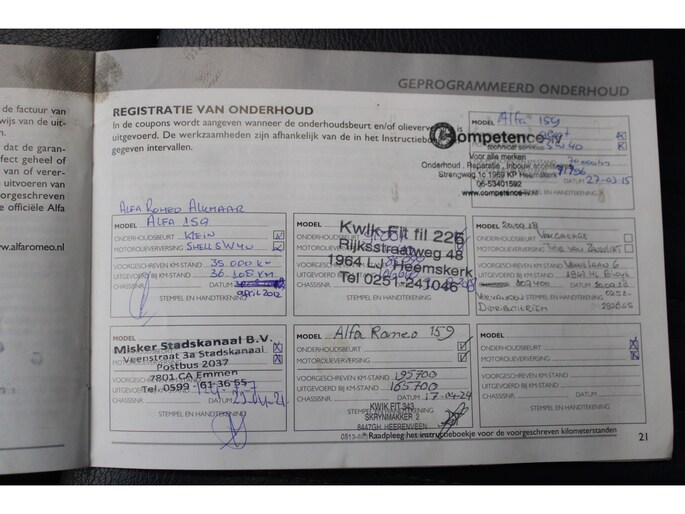 de factuur van
wijs van de uit-
dat de garan-
fect geheel of
van of verer-
uitvoeren van
orgeschreven
e officiële Alfa
w.alfaromeo.nl
GEPROGRAMMEERD ONDERHOUD
REGISTRATIE VAN ONDERHOUD
In de coupons wordt aangeven wanneer de onderhoudsbeurt en/of olieverversing
uitgevoerd. De werkzaamheden zijn afhankelijk van de in het Instructieboekje
gegeven intervallen.
MODEL Alfa 159
Competence
technical services 5W40
Voor alle merken
Onderhoud, Reparatie, Inbouw accessoires
Strengweg 1c 1969 KP Heemskerk
06-53401592 DATUM 27-03-15
www.competence-tv.nl
ALFA ROMEO ALKMAAR
MODEL ALFA 159
ONDERHOUDSBEURT KLEIN
MOTOROLIEVERVERSING SHELL 5W40
VOORGESCHREVEN KM-STAND 35 000 KM
UITGEVOERD BIJ KM-STAND 36.108 KM
CHASSISNR DATUM
april 2012
STEMPEL EN HANDTEKENING
MODEL
Kwik-Fit fil 226
Rijksstraatweg 48
1964 LJ Heemskerk
Tel 0251-241046
STEMPEL EN HANDTEKENING
MODEL
ONDERHOUDSBEURT
MOTOROLIEVERVERSING
VOORGESCHREVEN KM-STAND
UITGEVOERD BIJ KM-STAND
CHASSISNR DATUM
STEMPEL EN HANDTEKENING
MODEL
Misker Stadskanaal B.V.
Veenstraat 3a Stadskanaal
Postbus 2037
7801 CA Emmen
Tel. 0599 - 61 36 55
CHASSISNR DATUM
STEMPEL EN HANDTEKENING
MODEL Alfa Romeo 159
ONDERHOUDSBEURT
MOTOROLIEVERVERSING
VOORGESCHREVEN KM-STAND 195700
UITGEVOERD BIJ KM-STAND 165700
CHASSISNR DATUM 17-04-24
STEMPEL EN HANDTEKENING
KWIK FIT 343
SKRYNMAKKER 2
8447GH HEERENVEEN
MODEL
ONDERHOUDSBEURT
MOTOROLIEVERVERSING
VOORGESCHREVEN KM-STAND
UITGEVOERD BIJ KM-STAND
CHASSISNR DATUM
STEMPEL EN HANDTEKENING
* Raadpleeg het instructieboekje voor de voorgeschreven kilometerstanden
21